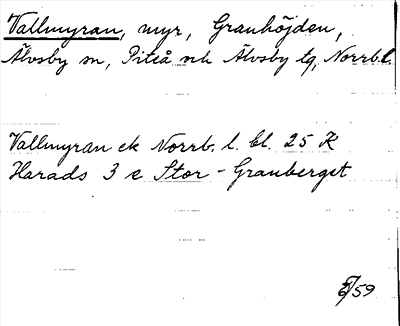 Vallmyran, myr, Granhöjden,
Älvsby sn, Piteå och Älvsby tg, Norrb. l.
Vallmyran ek Norrb. l. bl. 25 K
Harads 3 c Stor-Granberget
/59